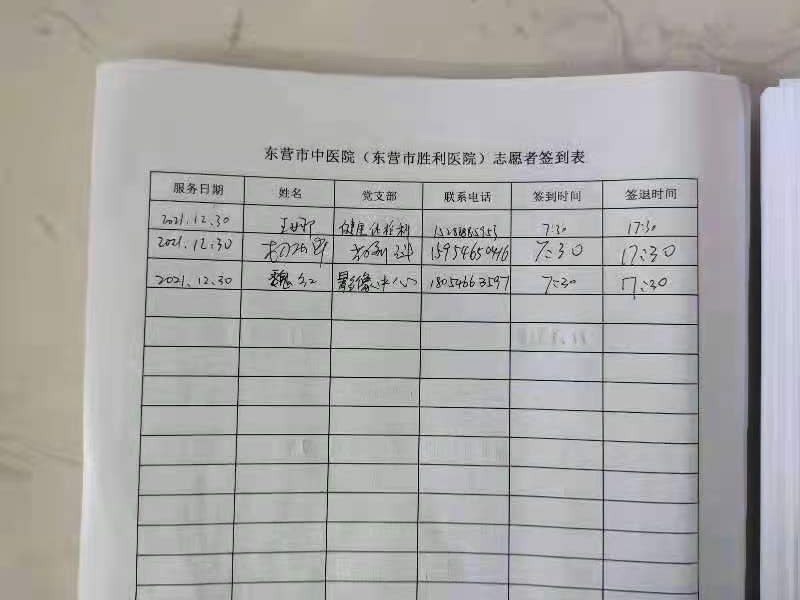 东营市中医院（东营市胜利医院）志愿者签到表
服务日期 姓名 党支部 联系电话 签到时间 签退时间
2021.12.30 健康体检科 7:30 17:30
2021.12.30 15954650416 7:30 17:30
2021.12.30 魏红 影像中心 18054663597 7:30 17:30